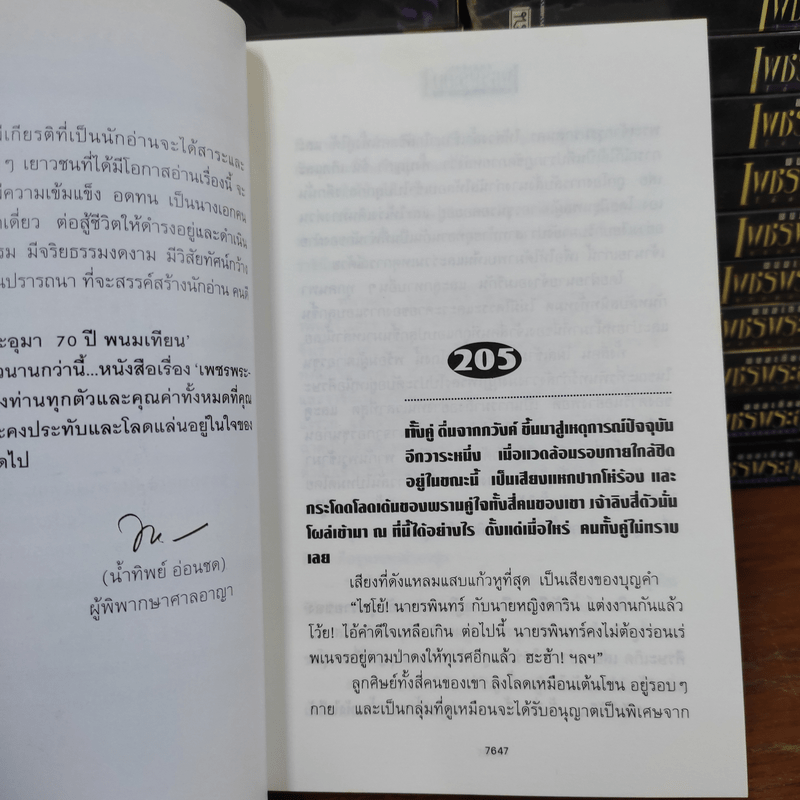 มีเกียรติที่เป็นนักอ่านจะได้สาระและ
ๆ เยาวชนที่ได้มีโอกาสอ่านเรื่องนี้ จะ
มีความเข้มแข็ง อดทน เป็นนางเอกคน
เดี่ยว ต่อสู้ชีวิตให้ดำรงอยู่และดำเนิน
รม มีจริยธรรมงดงาม มีวิสัยทัศน์กว้าง
นปรารถนา ที่จะสรรค์สร้างนักอ่าน คนดี
ะอุมา 70 ปี พนมเทียน'
วนานกว่านี้...หนังสือเรื่อง 'เพชรพระ-
งท่านทุกตัวและคุณค่าทั้งหมดที่คุณ
ะคงประทับและโลดแล่นอยู่ในใจของ
ดไป
(น้ำทิพย์ อ่อนชด)
ผู้พิพากษาศาลอาญา
205
ทั้งคู่ ตื่นจากภวังค์ ขึ้นมาสู่เหตุการณ์ปัจจุบัน
อีกวาระหนึ่ง เมื่อแวดล้อมรอบกายใกล้ชิด
อยู่ในขณะนี้ เป็นเสียงแหกปากโห่ร้อง และ
กระโดดโลดเต้นของพรานคู่ใจทั้งสี่คนของเขา เจ้าลิงสี่ตัวนั่น
โผล่เข้ามา ณ ที่นี้ได้อย่างไร ตั้งแต่เมื่อไหร่ คนทั้งคู่ไม่ทราบ
เลย
เสียงที่ดังแหลมแสบแก้วหูที่สุด เป็นเสียงของบุญคำ
"ไชโย้! นายรพินทร์ กับนายหญิงดาริน แต่งงานกันแล้ว
โว้ย! ไอ้คำดีใจเหลือเกิน ต่อไปนี้ นายรพินทร์คงไม่ต้องร่อนเร่
พเนจรอยู่ตามป่าดงให้ทุเรศอีกแล้ว ฮะฮ้า! ฯลฯ"
ลูกศิษย์ทั้งสี่คนของเขา ลิงโลดเหมือนเต้นโขน อยู่รอบๆ
กาย และเป็นกลุ่มที่ดูเหมือนจะได้รับอนุญาตเป็นพิเศษจาก
7647